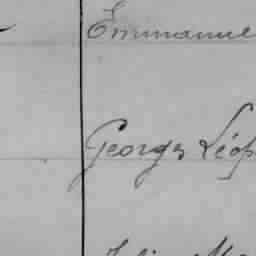 Emmanuel
Georges Léop